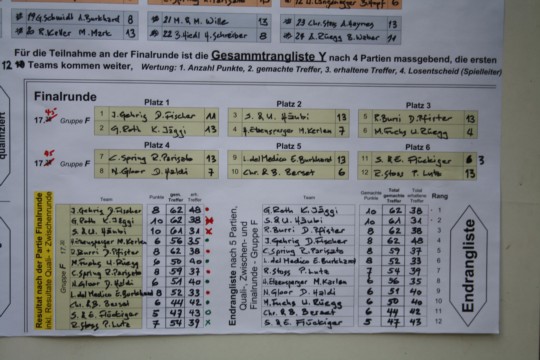 19 G. Schmidt A. Burkhard 8
21 M. & M. Wille 13
23 Chr. Stoss A. Haynes 13
20 R. Keller M. Mark 13
22 J. Hedl 4. Schreiber 8
24 A. Rüegg E. Weber 11
Für die Teilnahme an der Finalrunde ist die Gesammtrangliste Y nach 4 Partien massgebend, die ersten
12 Teams kommen weiter, Wertung: 1. Anzahl Punkte, 2. gemachte Treffer, 3. erhaltene Treffer, 4. Losentscheid (Spielleiter)
qualifiziert
Finalrunde
Platz 1 Platz 2 Platz 3
17.45 Gruppe F
1 J. Gehrig D. Fischer 11
3 S. & U. Häubi 13
5 R. Burri D. Pfister 13
2 G. Roth K. Jäggi 13
4 A. Ebensperger M. Kerlen 7
6 M. Fuchs U. Rüegg 4
Platz 4 Platz 5 Platz 6
17.45 Gruppe F
7 C. Spring R. Parisato 13
9 L. del Medico E. Burkhard 13
11 S. & E. Flückiger 3
8 N. Gloor D. Haldi 7
10 Chr. & B. Berset 6
12 R. Stoss P. Lutz 13
Resultat nach der Partie Finalrunde
inkl. Resultate Quali- + Zwischenrunde
Gruppe F
Team Punkte gem. Treffer erh. Treffer
J. Gehrig D. Fischer 8 62 48
G. Roth K. Jäggi 10 62 38
S. & U. Häubi 10 61 31
A. Ebensperger M. Kerlen 6 56 35
R. Burri D. Pfister 8 62 38
M. Fuchs U. Rüegg 6 50 40
C. Spring R. Parisato 8 59 37
N. Gloor D. Haldi 6 51 40
L. del Medico E. Burkhard 8 52 33
Chr. & B. Berset 6 44 42
S. & E. Flückiger 5 47 43
R. Stoss P. Lutz 7 54 39
Endrangliste nach 5 Partien,
Quali-, Zwischen- und
Finalrunde - Gruppe F
Team Gemachte Punkte Total gemachte Treffer Total erhaltene Treffer Rang
G. Roth K. Jäggi 10 62 38 1
S. & U. Häubi 10 61 31 2
R. Burri D. Pfister 8 62 38 3
J. Gehrig D. Fischer 8 62 48 4
C. Spring R. Parisato 8 59 37 5
L. del Medico E. Burkhard 8 52 33 6
R. Stoss P. Lutz 7 54 39 7
A. Ebensperger M. Kerlen 6 56 35 8
N. Gloor D. Haldi 6 51 40 9
M. Fuchs U. Rüegg 6 50 40 10
Chr. & B. Berset 6 44 42 11
S. & E. Flückiger 5 47 43 12
Endrangliste